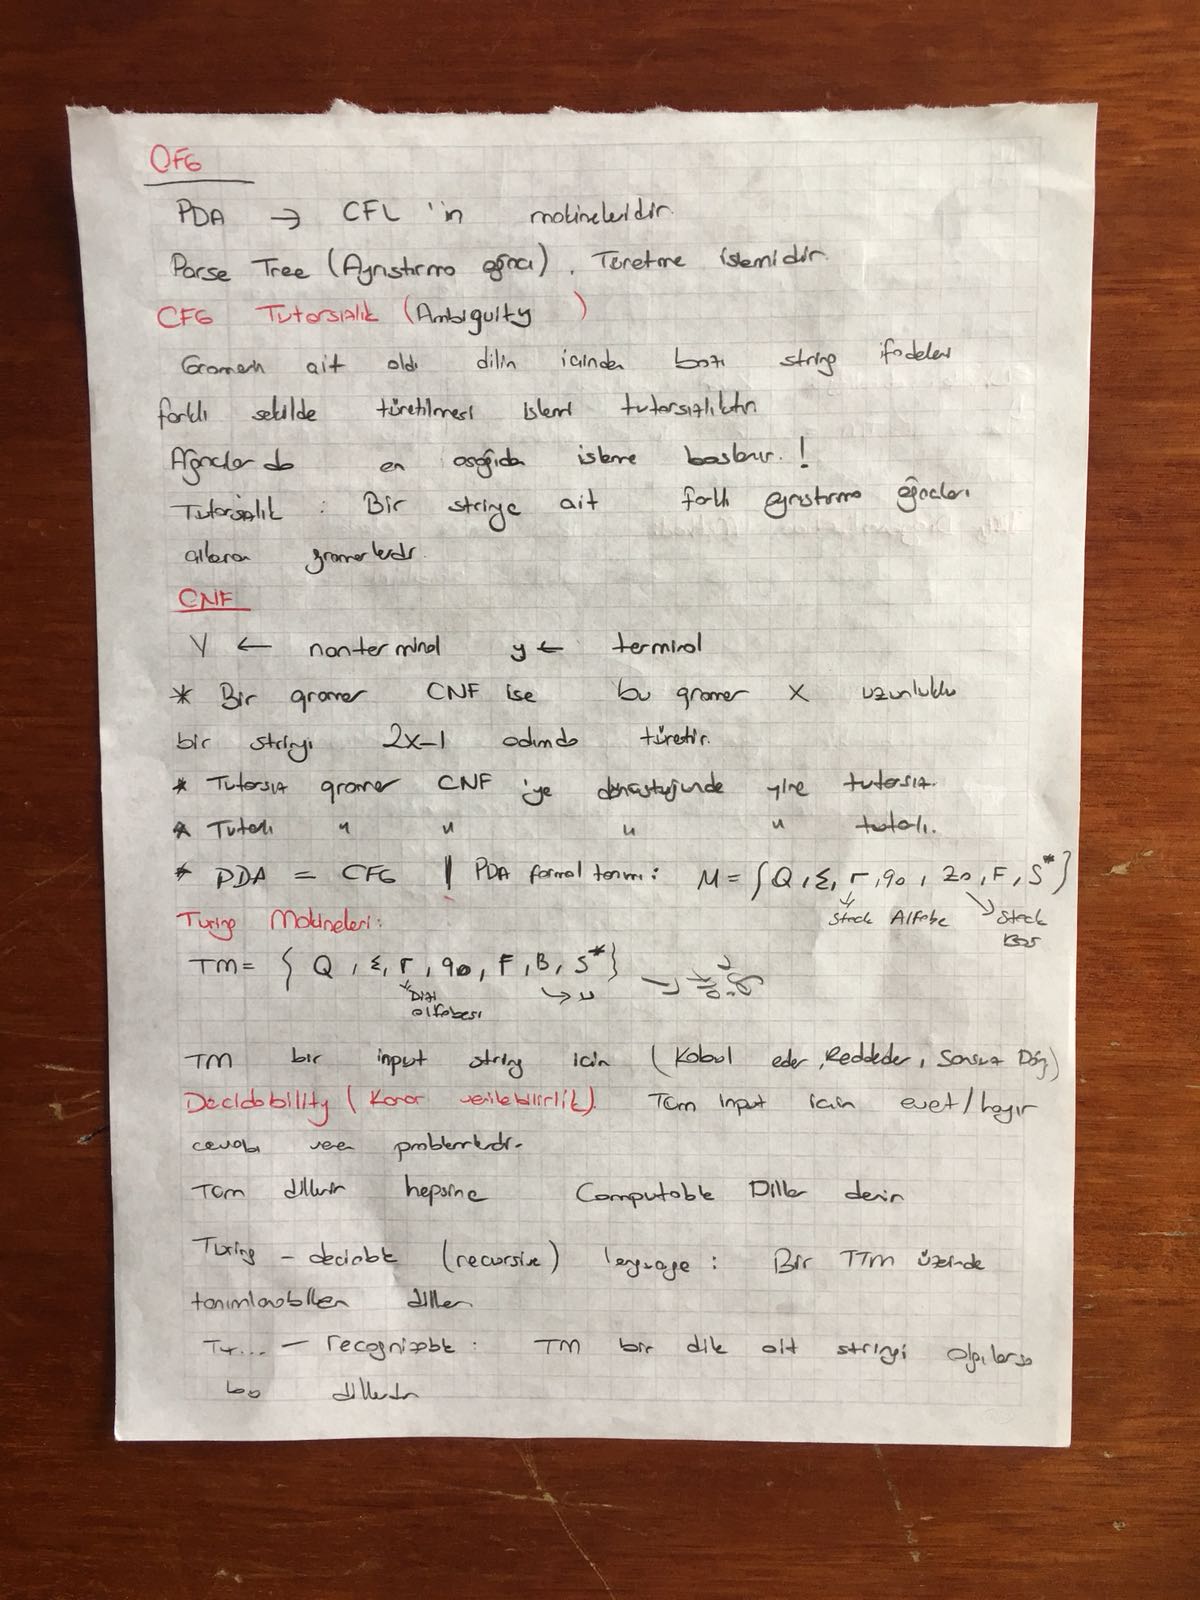 CFG
PDA → CFL 'in makineleridir.
Parse Tree (Ayrıştırma ağacı). Türetme işlemidir.
CFG Tutarsızlık (Ambiguity )
Gramerin ait oldı dilin içinden bazı string ifadeleri
farklı şekilde türetilmesi işlemi tutarsızlıktır.
Ağaçlarda en aşağıda işleme başlanır. !
Tutarsızlık : Bir stringe ait farklı ayrıştırma ağaçları
gramerlerdir.
CNF
V ← nonterminal y ← terminal
* Bir gramer CNF ise bu gramer X uzunluklu
bir stringi 2x-1 adımda türetir.
* Tutarsız gramer CNF 'ye dönüştüğünde yine tutarsız.
* Tutarlı " " " " tutarlı.
* PDA = CFG | PDA formal tanımı : M = { Q, Σ, Γ, q0, z0, F, δ* }
Stack Alfabe Stack
Turing Makineleri:
TM = { Q, Σ, Γ, q0, F, B, δ* }
Dizi
alfabesi
TM bir input string için (Kabul eder, Reddeder, Sonsuz Döng)
Decidability (Karar verilebilirlik). Tüm input için evet/hayır
cevabı veren problemlerdir.
Tüm dillerin hepsine Computable Diller denir
Turing - decidable (recursive) language : Bir TTM üzerinde
tanımlanabilen diller
Tu... - recognizable : TM bir dile ait stringi algılarsa
bu dillerdir